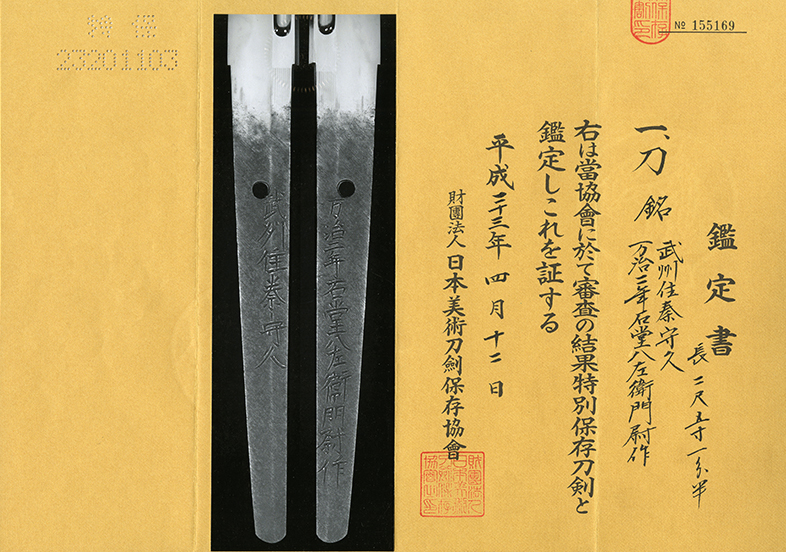 № 155169
鑑定書
長二尺五寸一分半
一、刀 銘 武州住秦守久
万治二年石堂八左衛門尉作
右は當協會に於て審査の結果特別保存刀剣と
鑑定しこれを証する
平成二十三年四月十二日
財團法人日本美術刀劍保存協會
万治二年石堂八左衛門尉作
武州住秦守久
特保
23201103